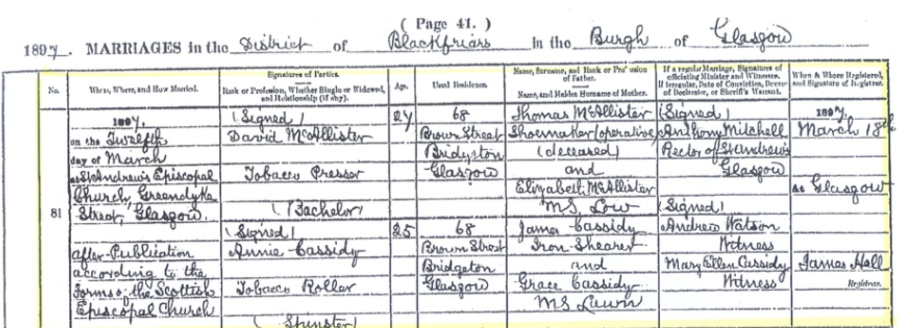 ( Page 41. )
1897. MARRIAGES in the District of Blackfriars in the Burgh of Glasgow
No.
When, Where, and How Married.
Signatures of Parties.
Rank or Profession, Whether Single or Widowed, and Relationship (if any).
Age.
Usual Residence.
Name, Surname, and Rank or Profession of Father.
Name, and Maiden Surname of Mother.
If a regular Marriage, Signatures of officiating Minister and Witnesses.
If irregular, Date of Conviction, Decree of Declarator, or Sheriff's Warrant.
When & Where Registered, and Signature of Registrar.
81
1897,
on the Twelfth
day of March
at St Andrew's Episcopal
Church, Greendyke
Street, Glasgow.
after Publication
according to the
Forms of the Scottish
Episcopal Church
(Signed)
David McAllister
Tobacco Presser
(Bachelor)
27
68
Brown Street
Bridgeton
Glasgow
Thomas McAllister
Shoemaker (operative)
(deceased)
and
Elizabeth McAllister
M.S. Low
(Signed)
Anthony Mitchell
Rector of St Andrew's
Glasgow
(Signed)
Andrew Watson
Witness
Mary Ellen Cassidy
Witness
(Signed)
Annie Cassidy
Tobacco Roller
(Spinster)
25
68
Brown Street
Bridgeton
Glasgow
James Cassidy
Iron Shearer
and
Grace Cassidy
M.S.
1897
March 18th
at Glasgow
James Hall
Registrar.